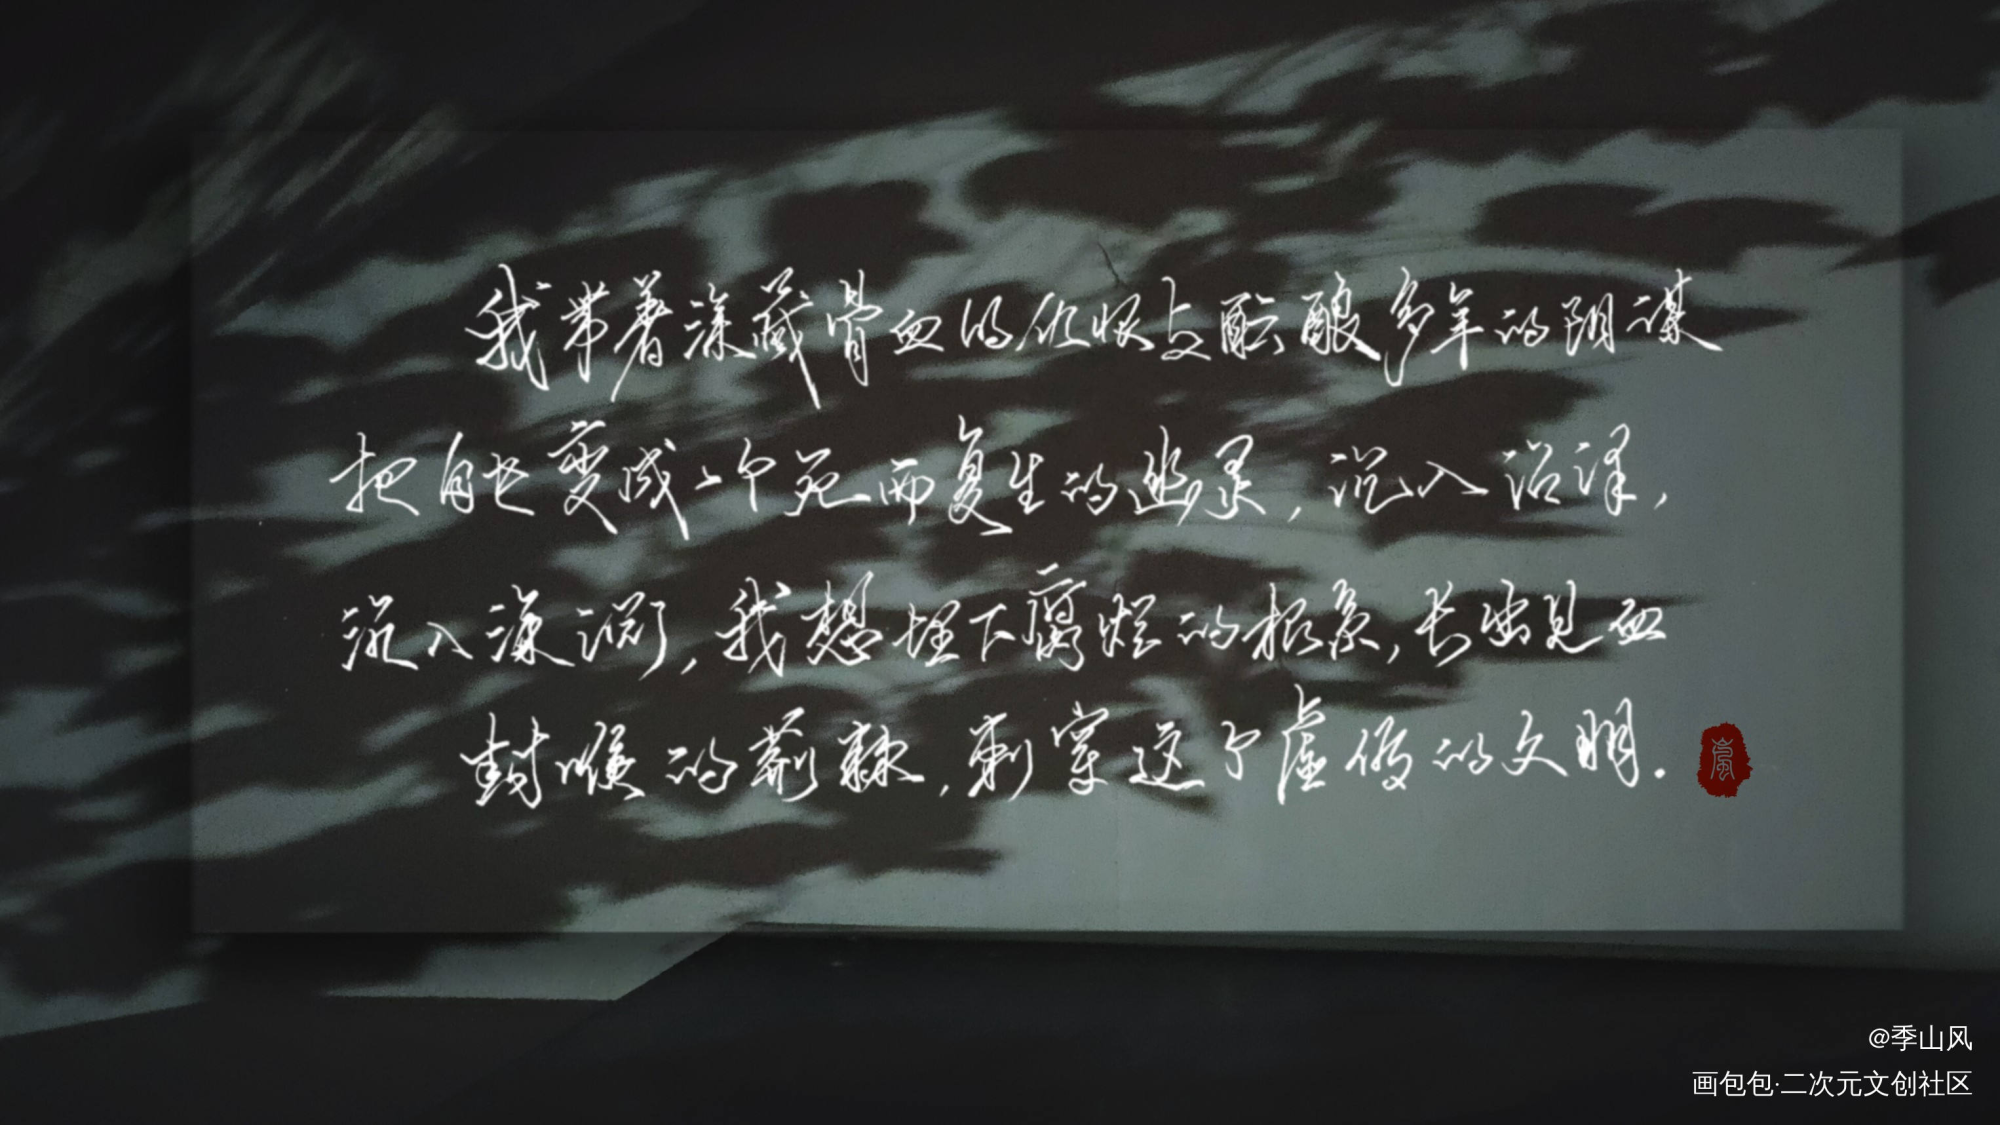 我带着深藏骨血的仇恨与酝酿多年的阴谋
把自己变成一个死而复生的幽灵，沉入沼泽，
沉入深渊，我想埋下腐烂的根系，长出见血
封喉的荆棘，刺穿这个虚伪的文明.
嵐
@季山风
画包包·二次元文创社区